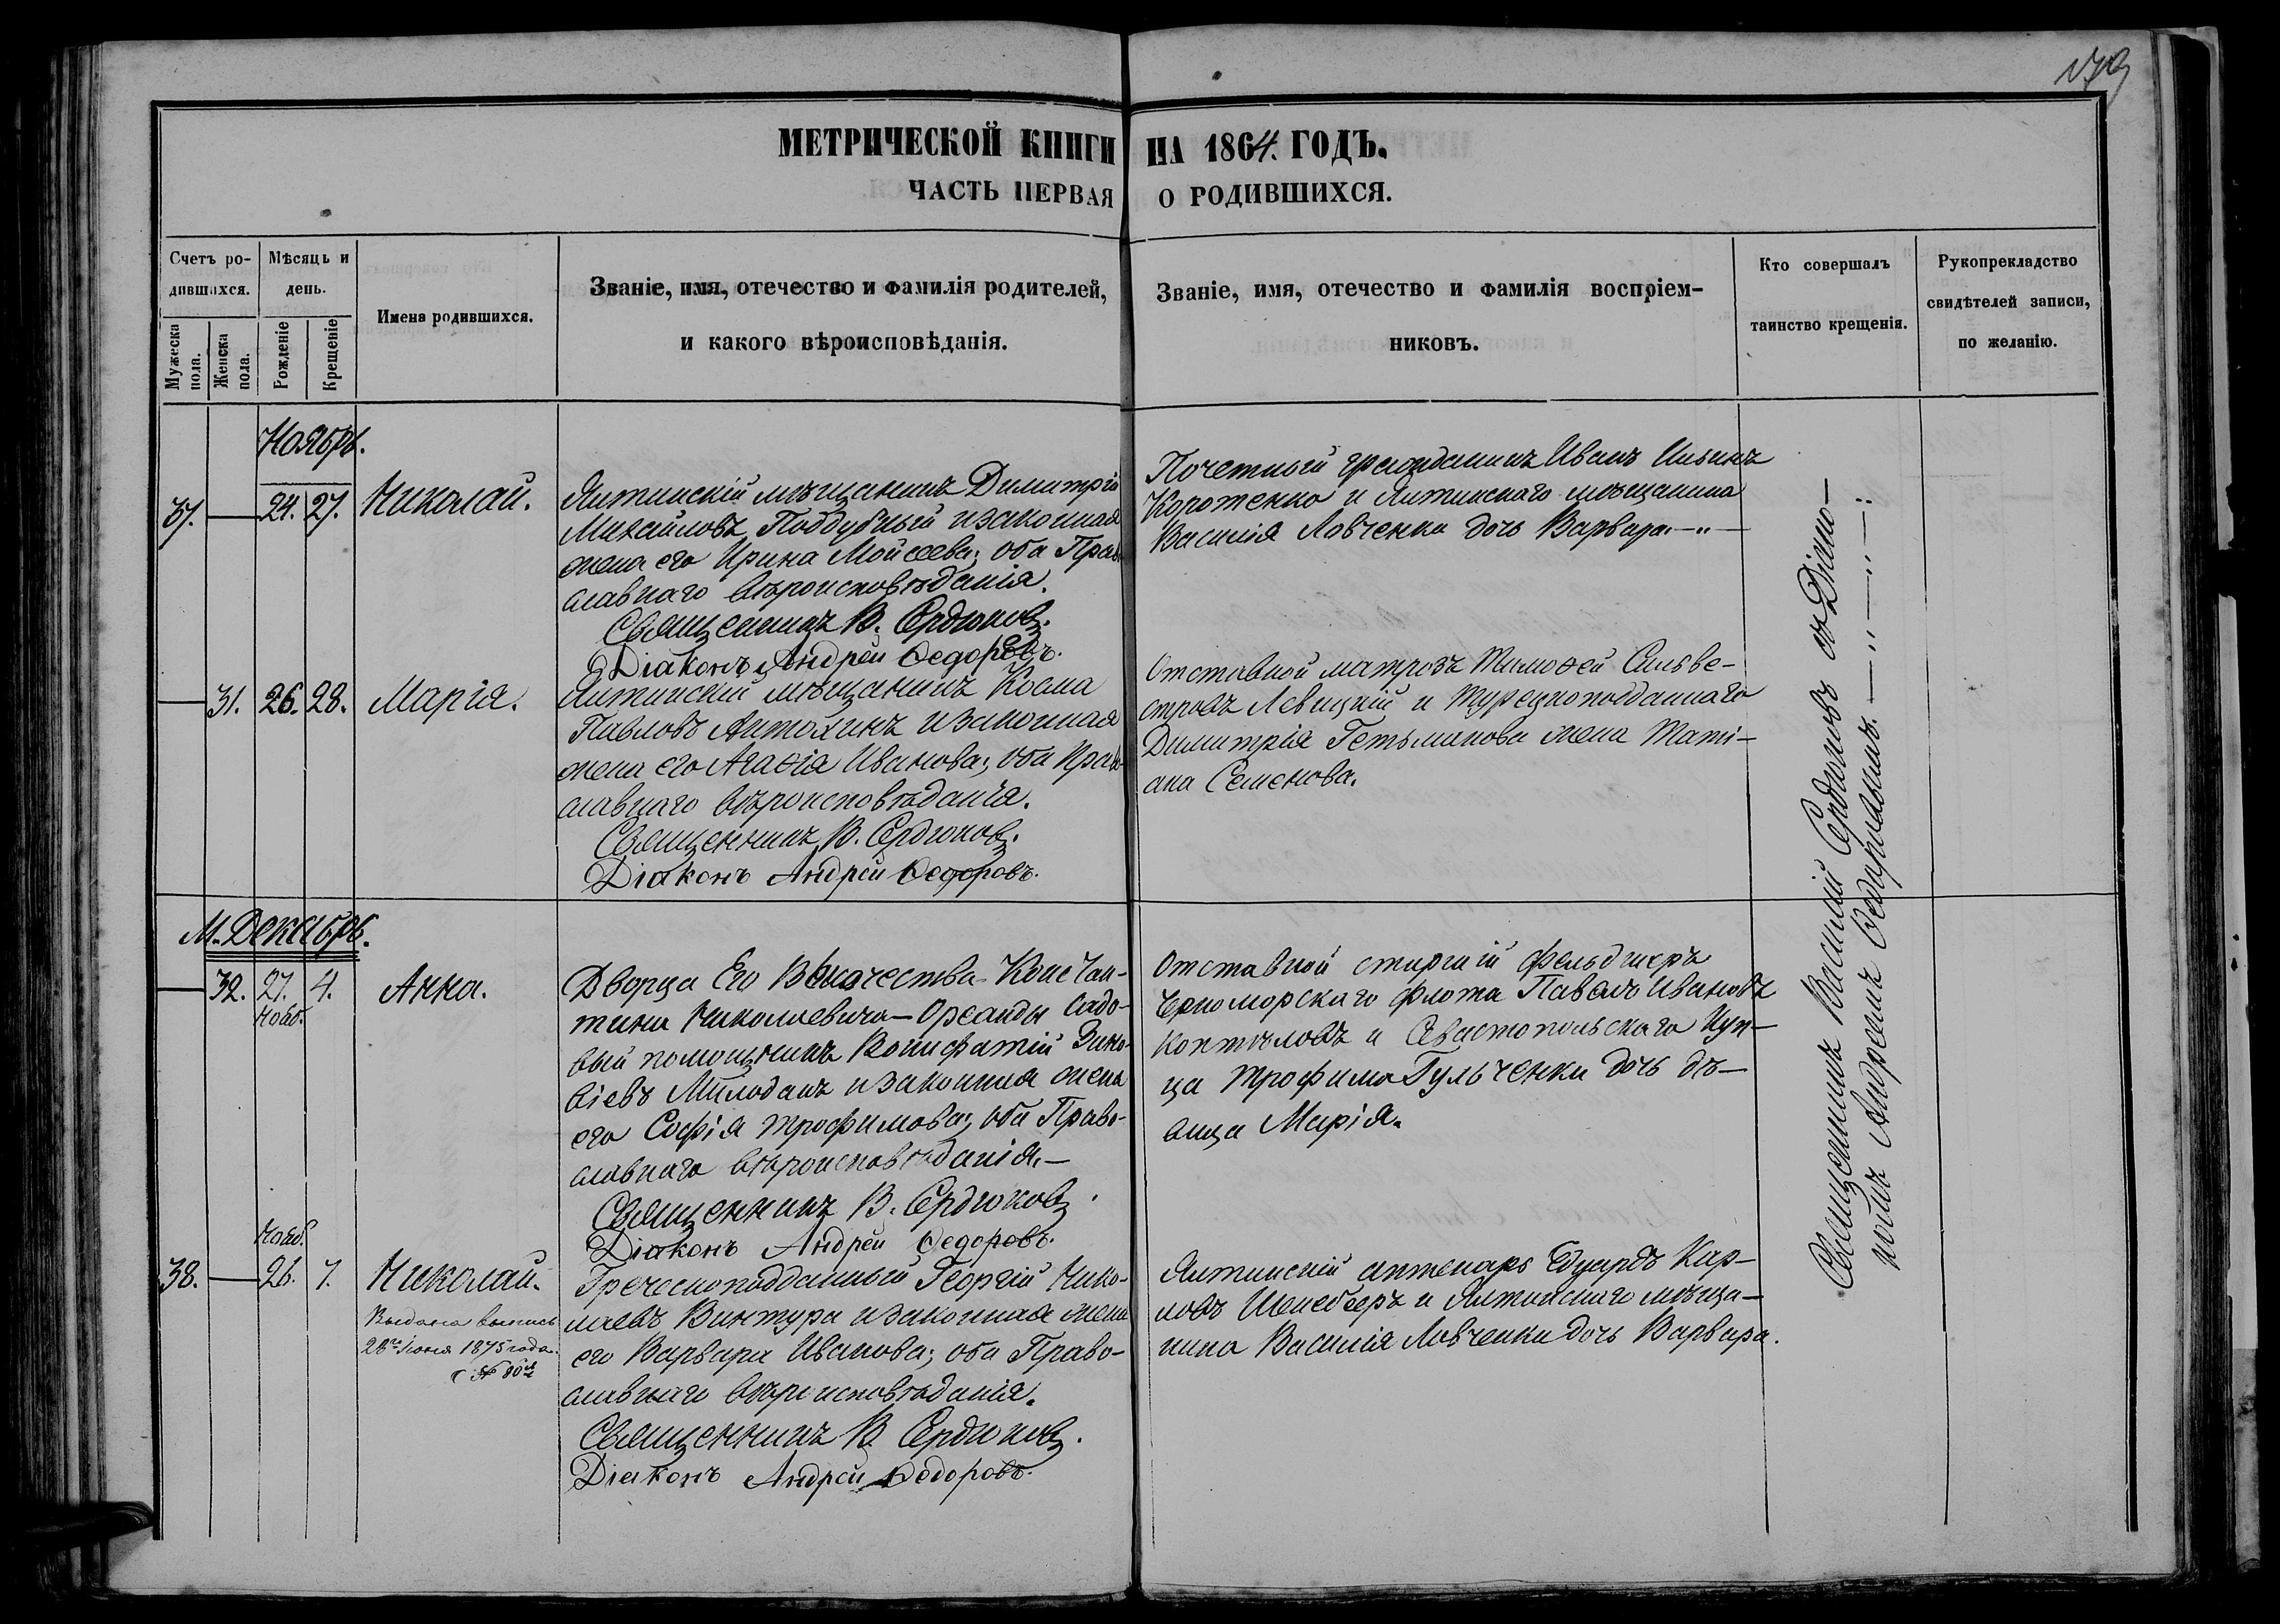 179
МЕТРИЧЕСКОЙ КНИГИ НА 1864. ГОДЪ.
ЧАСТЬ ПЕРВАЯ О РОДИВШИХСЯ.
Счетъ ро-
дившихся.
Мужеска
пола.
Женска
пола.
Мѣсяць и
день.
Рожденіе
Крещеніе
Имена родившихся.
Званіе, имя, отечество и фамилія родителей,
и какого вѣроисповѣданія.
Званіе, имя, отечество и фамилія воспріем-
никовъ.
Кто совершалъ
таинство крещенія.
Рукоприкладство
свидѣтелей записи,
по желанію.
Ноябрь.
37. — 24. 27. Николай.
Ялтинскій мѣщанинъ Димитрій
Михайловъ Поддубный и законная
жена его Ирина Мойсеева; оба Право
славнаго вѣроисповѣданія.
Священникъ В. Сердюковъ.
Діаконъ Андрей Ѳедоровъ.
Почетный гражданинъ Иванъ Ильинъ
Коротенко и Ялтинскаго мѣщанина
Василія Ловченки дочь Варвара. — „ —
— 31. 26. 28. Марія.
Ялтинскій мѣщанинъ Косма
Павловъ Антохинъ и законная
жена его Агаѳія Иванова; оба Право-
славнаго вѣроисповѣданія.
Священникъ В. Сердюковъ.
Діаконъ Андрей Ѳедоровъ.
Отставной матрозъ Тимоѳей Сильве-
стровъ Левицкій и Турецкоподданнаго
Димитрія Гетьманова жена Таті-
ана Семенова.
М. Декабрь.
— 32. 27. Нояб. 4. Анна.
Дворца Его Высочества Констан-
тина Николаевича — Ореанды Садо-
вый помощникъ Вонифатій Зино-
віевъ Милоданъ и законная жена
его Софія Трофимова; оба Право-
славнаго вѣроисповѣданія. —
Священникъ В. Сердюковъ.
Діаконъ Андрей Ѳедоровъ.
Отставной старшій фельдшеръ
Черноморскаго флота Павелъ Ивановъ
Коптиловъ и Севастопольскаго Куп-
ца Трофима Гульченки дочь дѣ-
вица Марія.
38. — Нояб. 26. 7. Николай.
Выдана выпись
28го Іюня 1875 года
с № 80й
Греческоподданный Георгій Нико-
лаевъ Винтура и законная жена
его Варвара Иванова; оба Право-
славнаго вѣроисповѣданія.
Священникъ В. Сердюковъ.
Діаконъ Андрей Ѳедоровъ.
Ялтинскій аптекарь Едуардъ Кар-
ловъ и Ялтинскаго мѣща-
нина Василія Ловченки дочь Варвара.
Священникъ Василій Сердюковъ съ Діако-
номъ Андреемъ Ѳедоровымъ. — „ — „ — :